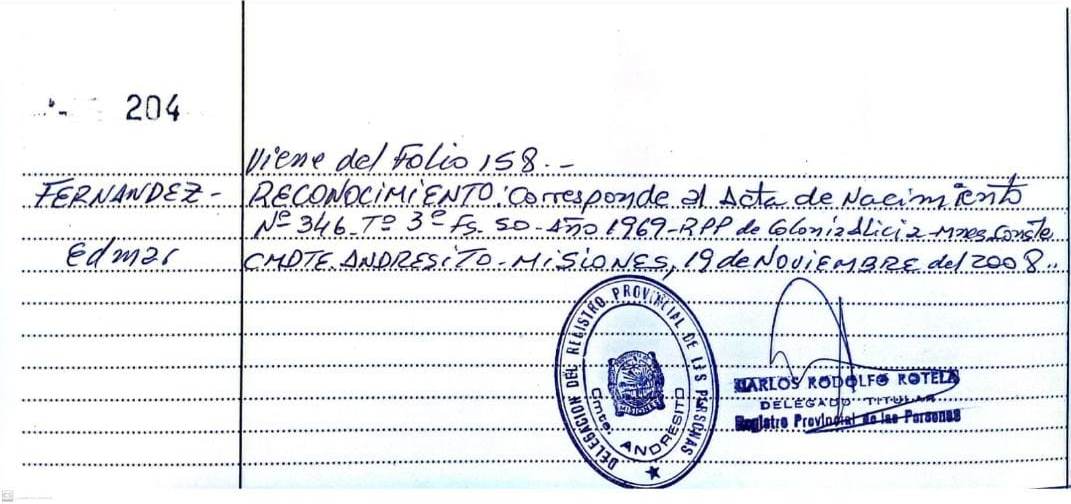 204
Viene del Folio 158.-
FERNANDEZ-
RECONOCIMIENTO: Corresponde al Acta de Nacimiento
Nº 346-Tº 3º Fs. 50-Año 1969-RPP de Colonia Alicia-Mnes. Conste
Edmar
CMDTE. ANDRESITO-MISIONES, 19 de NOVIEMBRE del 2008..
DELEGACION DEL REGISTRO PROVINCIAL DE LAS PERSONAS
MISIONES
Cmte. ANDRESITO
CARLOS RODOLFO ROTELA
DELEGADO TITULAR
Registro Provincial de las Personas